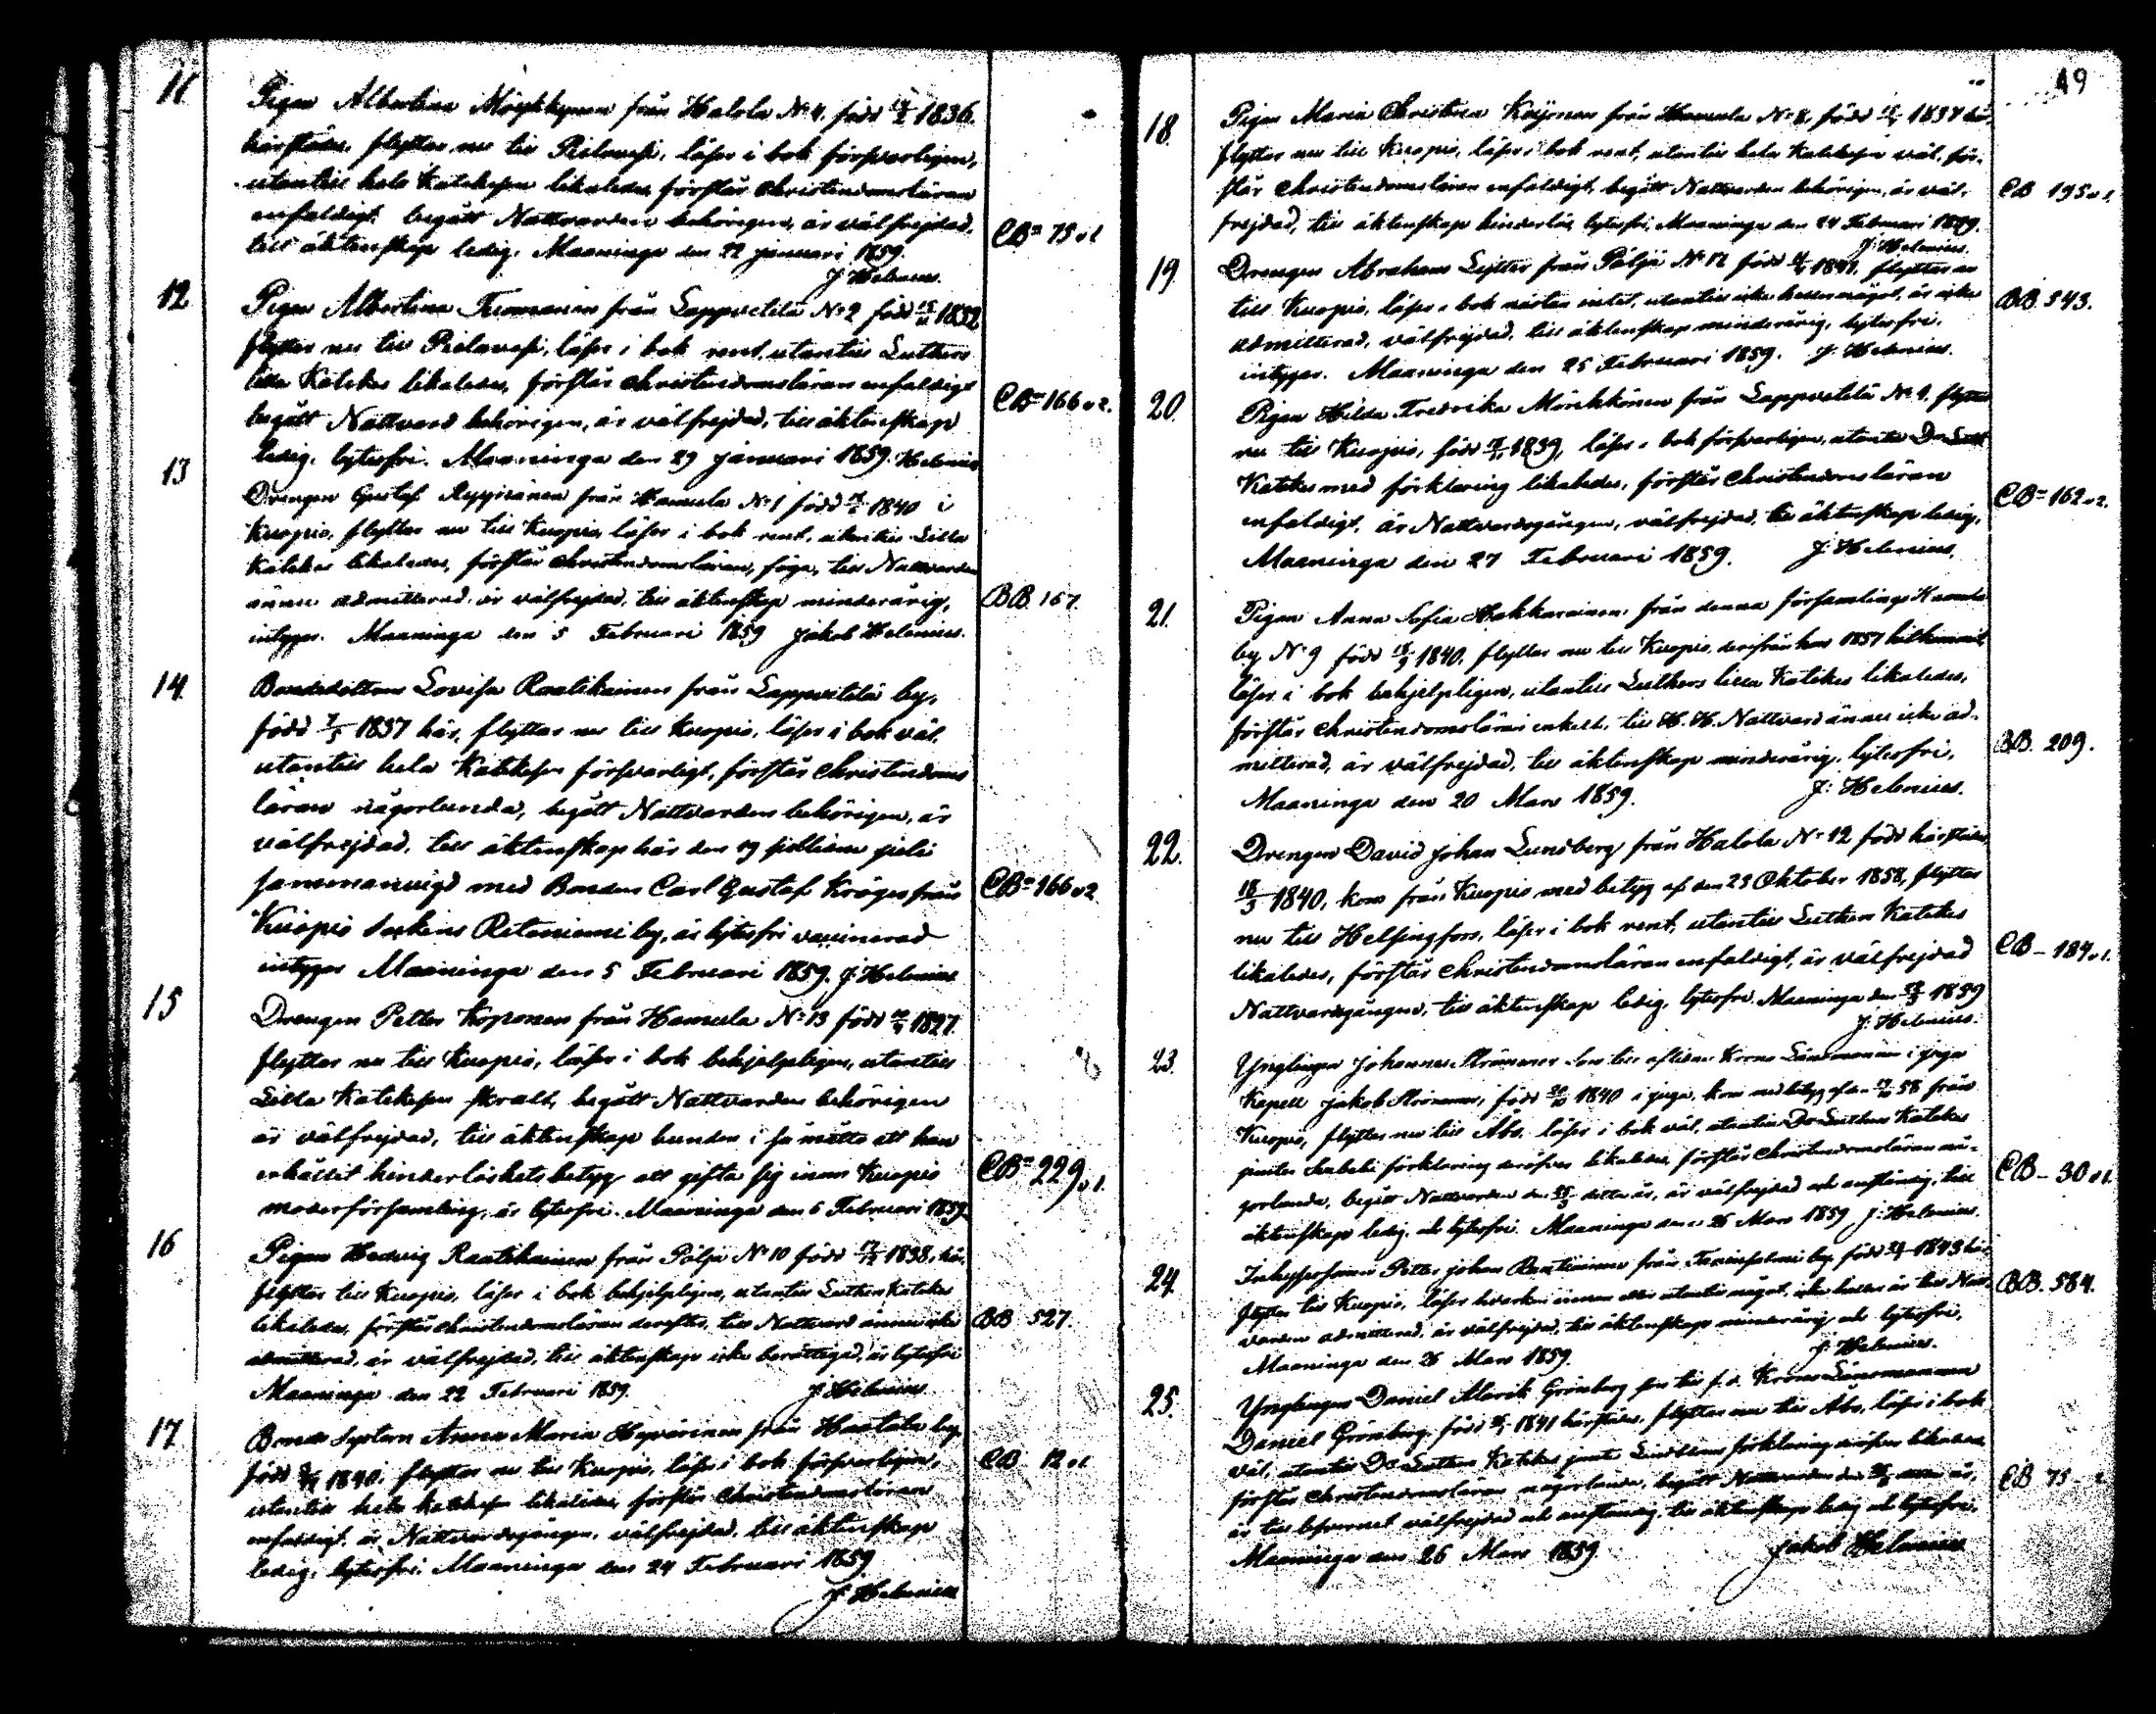 11.
Pigan Albertina Mörkkynen från Halola No 4, född 1836.
härstädes, flyttar nu till Pielavesi, läser i bok försvarligen,
utantill hela Katekesen likaledes, förstår christendomsläran
enfaldigt, begått Nattvarden behörigen, är välfrejdad,
till äktenskap ledig. Maaninga den 22 januari 1859.
J. Helenius.
CB= 75 v 1
12
Pigan Albertina Tuomainen från Lappvetelä No 2 född 1832
flyttar nu till Pielavesi, läser i bok rent, utantill Luthers
lilla Katekes likaledes, förstår christendomsläran enfaldigt
begått Nattvard behörigen, är välfrejdad, till äktenskap
ledig, lytesfri. Maaninga den 29 januari 1859. Helenius
CB= 166 v 2.
13
Drengen Gustaf från Hamula No 1 född 1840 i
Kuopio, flyttar nu till Kuopio, läser i bok rent, utantill Lilla
Katekes likaledes, förstår christendomsläran, föga, till Nattvarden
ännu admitterad, är välfrejdad, till äktenskap minderårig,
intygar. Maaninga den 5 Februari 1859 Jakob Helenius.
BB. 167.
14.
Bondedottren Lovisa Raatikainen från Lappvetelä by,
född 7/5 1837 här, flyttar nu till Kuopio, läser i bok väl,
utantill hela Katekesen försvarligt, förstår christendoms
läran någorlunda, begått Nattvarden behörigen, är
välfrejdad, till äktenskap här den 19 sistledne juli
sammanvigd med Bonden Carl Gustaf Kröger från
Kuopio Sockens Ritoniemi by, är lytesfri vaccinerad
intygar Maaninga den 5 Februari 1859. J. Helenius
CB= 166 v 2
15
Drengen Petter Koponen från Hamula No 13 född 1827.
flyttar nu till Kuopio, läser i bok behjelpligen, utantill
Lilla Katekesen svalt, begått Nattvarden behörigen
är välfrejdad, till äktenskap bunden i så måtto att han
erhållit hinderlöshetsbetyg att gifta sig inom Kuopio
moderförsamling, är lytesfri. Maaninga den 6 Februari 1859
CB= 229 v 1.
16
Pigan Hedvig Raatikainen från Pöljä No 10 född 1838, här,
flyttar till Kuopio, läser i bok behjelpligen, utantill Luthers Katekes
likaledes, förstår christendomsläran derefter, till Nattvard ännu icke
admitterad, är välfrejdad, till äktenskap icke berättigad, är lytesfri
Maaninga den 22 Februari 1859. J. Helenius
BB 527.
17.
Bonde Systern Anna Maria Hyvärinen från Haatala by,
född 1840, flyttar nu till Kuopio, läser i bok försvarligen,
utantill hela katekesen likaledes, förstår christendomsläran
enfaldigt, är Nattvardsgången, välfrejdad, till äktenskap
ledig, lytesfri. Maaninga den 24 Februari 1859
J. Helenius
CB 12 v 1
49
18.
Pigan Maria Christina Keijonen från Hamula No 8, född 1837 här,
flyttar nu till Kuopio, läser i bok rent, utantill hela Katekesen väl, för-
står christendomsläran enfaldigt, begått Nattvarden behörigen, är väl-
frejdad, till äktenskap hinderlös, lytesfri. Maaninga den 24 Februari 1859.
J. Helenius.
CB 195 v 1.
19.
Drengen Abraham från Pöljä No 12 född 1841, flyttar nu
till Kuopio, läser i bok nästan intet, utantill icke heller något, är icke
admitterad, välfrejdad, till äktenskap minderårig, lytesfri,
intygar. Maaninga den 25 Februari 1859. J. Helenius.
BB. 543.
20.
Pigan Hilda Fredrika Mörkkönen från Lappvetelä No 4, flyttar
nu till Kuopio, född 1839, läser i bok försvarligen, utantill Dr Luth
Katekes med förklaring likaledes, förstår Christendomsläran
enfaldigt, är Nattvardsgången, välfrejdad, till äktenskap ledig,
Maaninga den 27 Februari 1859. J. Helenius.
CB= 162 v 2.
21.
Pigan Anna Sofia Hakkarainen från denna församlings Hamula
by No 9 född 1840, flyttar nu till Kuopio, derifrån hon 1857 hitkommit,
läser i bok behjelpligen, utantill Luthers lilla Katekes likaledes,
förstår christendomsläran enkelt, till H. H. Nattvard ännu icke ad-
mitterad, är välfrejdad, till äktenskap minderårig, lytesfri,
Maaninga den 20 Mars 1859. J. Helenius.
BB. 209.
22.
Drengen David Johan Lundberg från Halola No 12 född härstädes
18/3 1840, kom från Kuopio med betyg af den 23 Oktober 1858, flyttar
nu till Helsingfors, läser i bok rent, utantill Luthers Katekes
likaledes, förstår Christendomsläran enfaldigt, är välfrejdad
Nattvardsgången, till äktenskap ledig, lytesfri. Maaninga den 1859
J. Helenius.
CB - 184 v 1.
23.
Ynglingen Johannes Strömmer Son till aflidne Krono Länsmannen i
Kapell Jakob Strömmer, född 1840 i, kom med betyg af den 58 från
Kuopio, flyttar nu till Åbo, läser i bok väl, utantill Dr Luthers Katekes
förklaring deröfver likaledes, förstår Christendomsläran nå-
gorlunda, begått Nattvarden den detta år, är välfrejdad och anständig, till
äktenskap ledig, och lytesfri. Maaninga den 26 Mars 1859 J. Helenius.
CB - 30 v 1.
24.
Inhysessonen Petter Johan från by, född 1843 här,
flyttar till Kuopio, läser hvarken innan eller utantill något, icke heller är till Natt-
varden admitterad, är välfrejdad, till äktenskap minderårig och lytesfri,
Maaninga den 26 Mars 1859. J. Helenius.
BB. 584.
25.
Ynglingen Daniel Alarik Grönberg son till f.d. Krono Länsmannen
Daniel Grönberg, född 1841 härstädes, flyttar nu till Åbo, läser i bok
väl, utantill Dr Luthers Katekes jemte Lindbloms förklaring deröfver likaledes,
förstår Christendomsläran någorlunda, begått Nattvarden den år,
är till lefvernet välfrejdad och anständig, till äktenskap ledig och lytesfri,
Maaninga den 26 Mars 1859. Jakob Helenius
CB 75